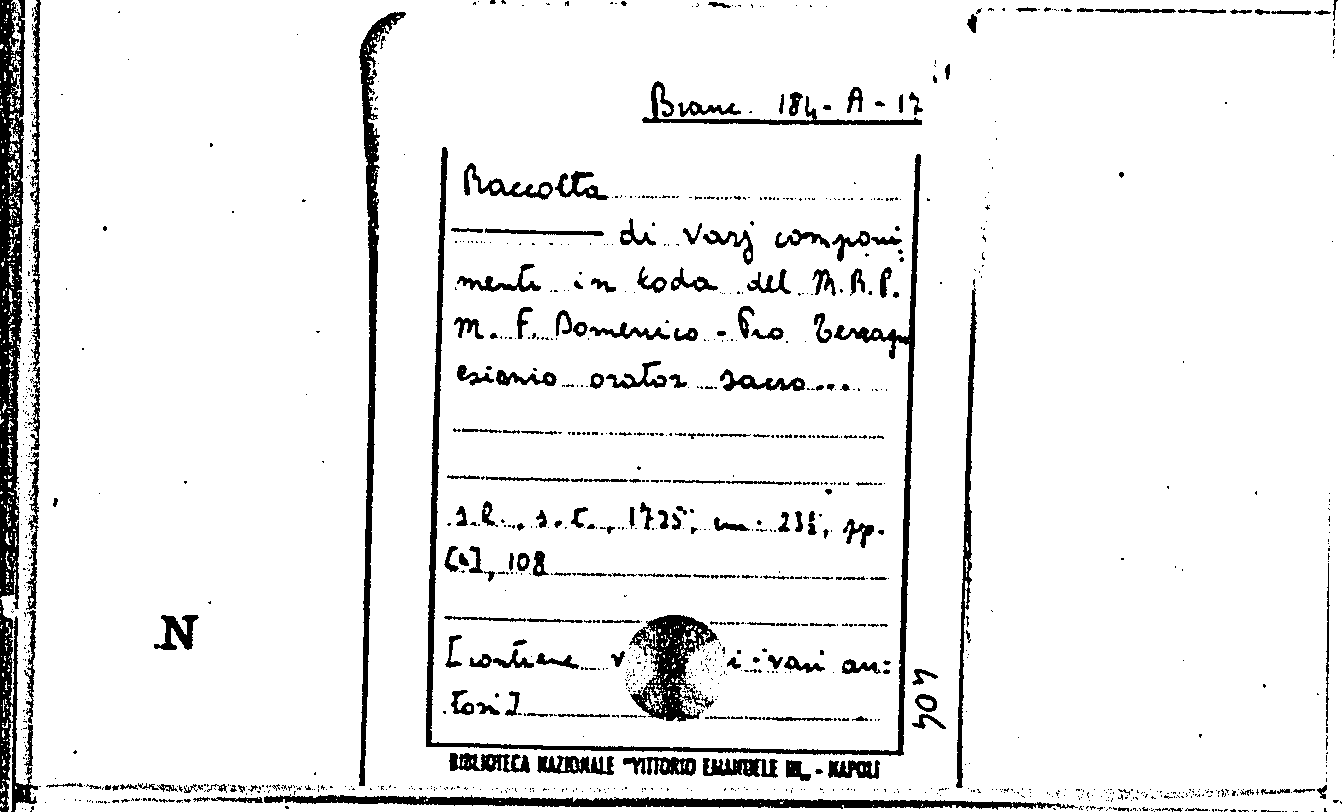 Branc. 184 - A - 17
Raccolta
di varj componi:
menti in loda del M.R.P.
M. F. Domenico - Pio
esionio orator sacro...
s.l., s.t., 1725; cm. 23½, pp.
[4], 108
[contiene v i vari au:
tori]
404
N
BIBLIOTECA NAZIONALE "VITTORIO EMANUELE III„ - NAPOLI